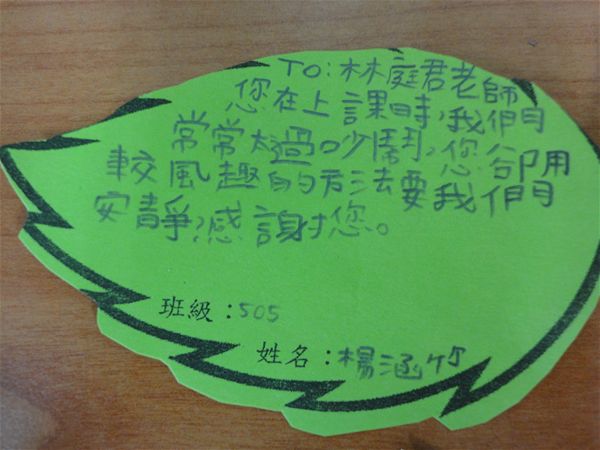 TO:林庭君老師
您在上課時,我們
常常太過吵鬧,您卻用
較風趣的方法要我們
安靜,感謝您。
班級:505
姓名:楊涵竹